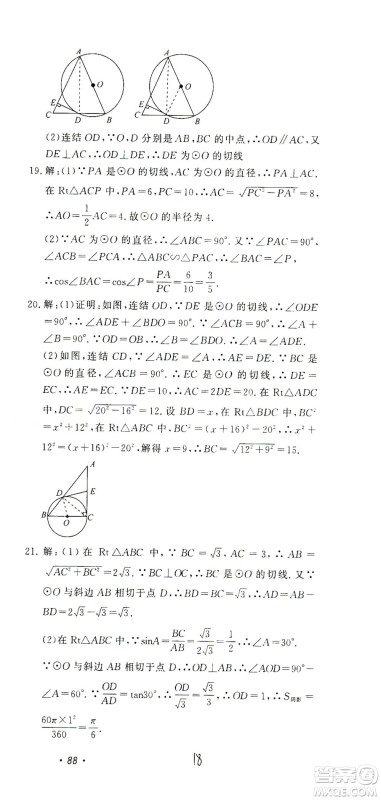 A
O
E
C
D
B
A
O
E
C
D
B
(2)连结 OD,∵O,D 分别是 AB,BC 的中点,∴OD∥AC,又
DE⊥AC,∴OD⊥DE,∴DE 为⊙O 的切线
19.解:(1)∵PA 是⊙O 的切线,AC 为⊙O 的直径,∴PA⊥AC,
在 Rt△ACP 中,PA=6,PC=10,∴AC=√(PC²-PA²)=8,
∴AO=1/2 AC=4.故⊙O 的半径为 4.
(2)∵AC 为⊙O 的直径,∴∠ABC=90°.∵∠BAC=90°-
∠BCA=∠PCA,∴△ABC∽△PAC,∴∠BAC=∠P,
∴cos∠BAC=cos∠P=PA/PC=6/10=3/5.
20.解:(1)证明:如图,连结 OD,∵DE 是⊙O 的切线,∴∠ODE
=90°,∴∠ADE+∠BDO=90°.∵∠ACB=90°,∴∠A+
∠B=90°.∵OD=OB,∴∠B=∠BDO,∴∠ADE=∠A
(2)如图,连结 CD,∵∠ADE=∠A,∴AE=DE.∵BC
是⊙O 的直径,∠ACB=90°,∴EC是⊙O 的切线,∴DE=
EC,∴AE=EC.∵DE=10,∴AC=2DE=20.在 Rt△ADC
中,DC=√(20²-16²)=12.设 BD=x,在 Rt△BDC 中,BC²
=x²+12²,在 Rt△ABC 中,BC²=(x+16)²-20²,∴x²+
12²=(x+16)²-20²,解得 x=9,∴BC=√(12²+9²)=15.
A
D
E
B
O
C
21.解:(1)在 Rt△ABC 中,∵BC=√3,AC=3,∴AB=
√(AC²+BC²)=2√3.∵BC⊥OC,∴BC 是⊙O 的切线.∵⊙O
与斜边 AB 相切于点 D,∴BD=BC=√3,∴AD=AB-BD
=√3
(2)在 Rt△ABC 中,∵sinA=BC/AB=√3/2√3=1/2,∴∠A=30°.
∵⊙O 与斜边 AB 相切于点 D,∴OD⊥AB,∴∠AOD=90°
-∠A=60°.∵OD/AD=tanA=tan30°,∴OD/√3=√3/3,∴OD=1,∴S阴影=
60π×1²/360=π/6.
· 88 ·
18